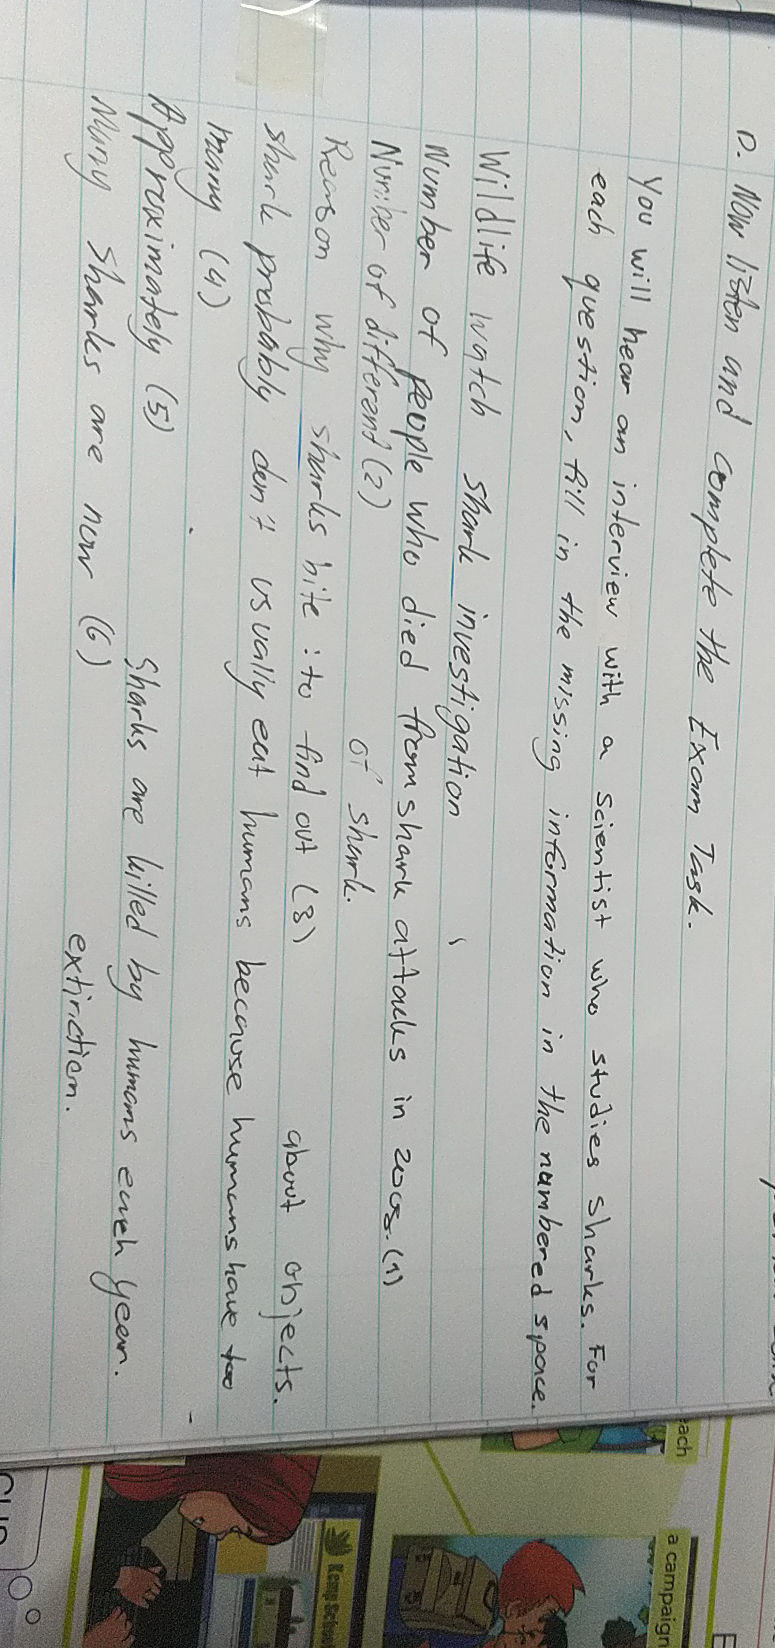 D. Now listen and complete the Exam Task.
You will hear an interview with a scientist who studies sharks. For
each question, fill in the missing information in the numbered space.
Wildlife watch shark investigation
Number of people who died from shark attacks in 2005. (1)
Number of differend (2) of shark.
Reason why sharks bite : to find out (3) about objects.
shark probably den't usually eat humans because humans have too
many (4)
Approximately (5) Sharks are killed by humans each year.
Many sharks are now (6) extinction.
each
a campaign
Kemp School